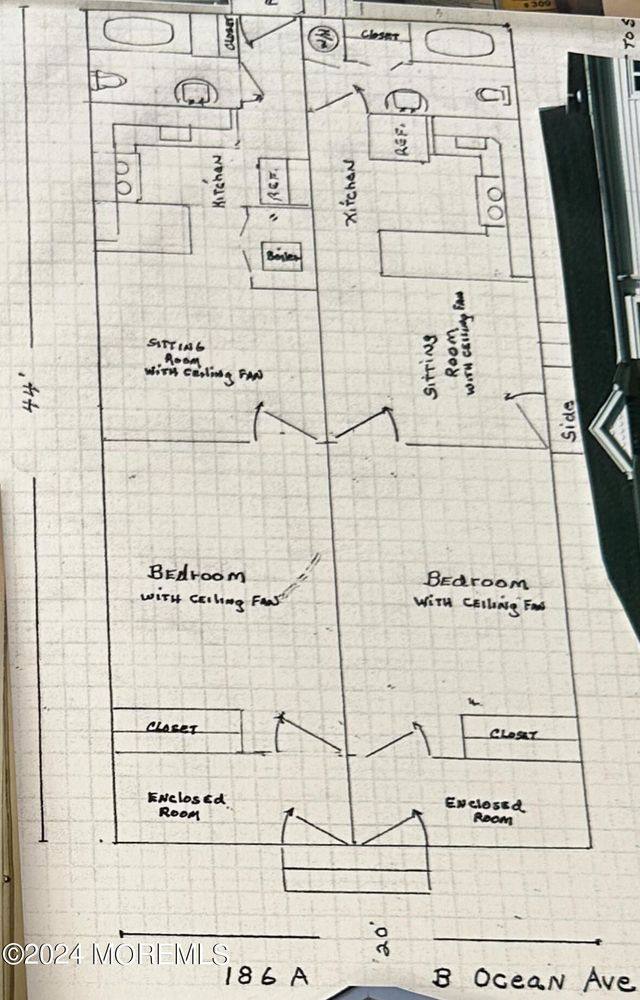 $309
TO S
CLOSET
W/H
CLOSET
REF.
Kitchen
REF.
Kitchen
Boiler
SITTING
Room
WITH Ceiling FAN
SITTING
ROOM
WITH CEILING FAN
44'
Side
Bedroom
WITH CEILING FAN
Bedroom
WITH CEILING FAN
CLOSET
CLOSET
ENCLOSED
ROOM
ENCLOSED
ROOM
20'
©2024 MOREMLS
186 A B OCEAN Ave